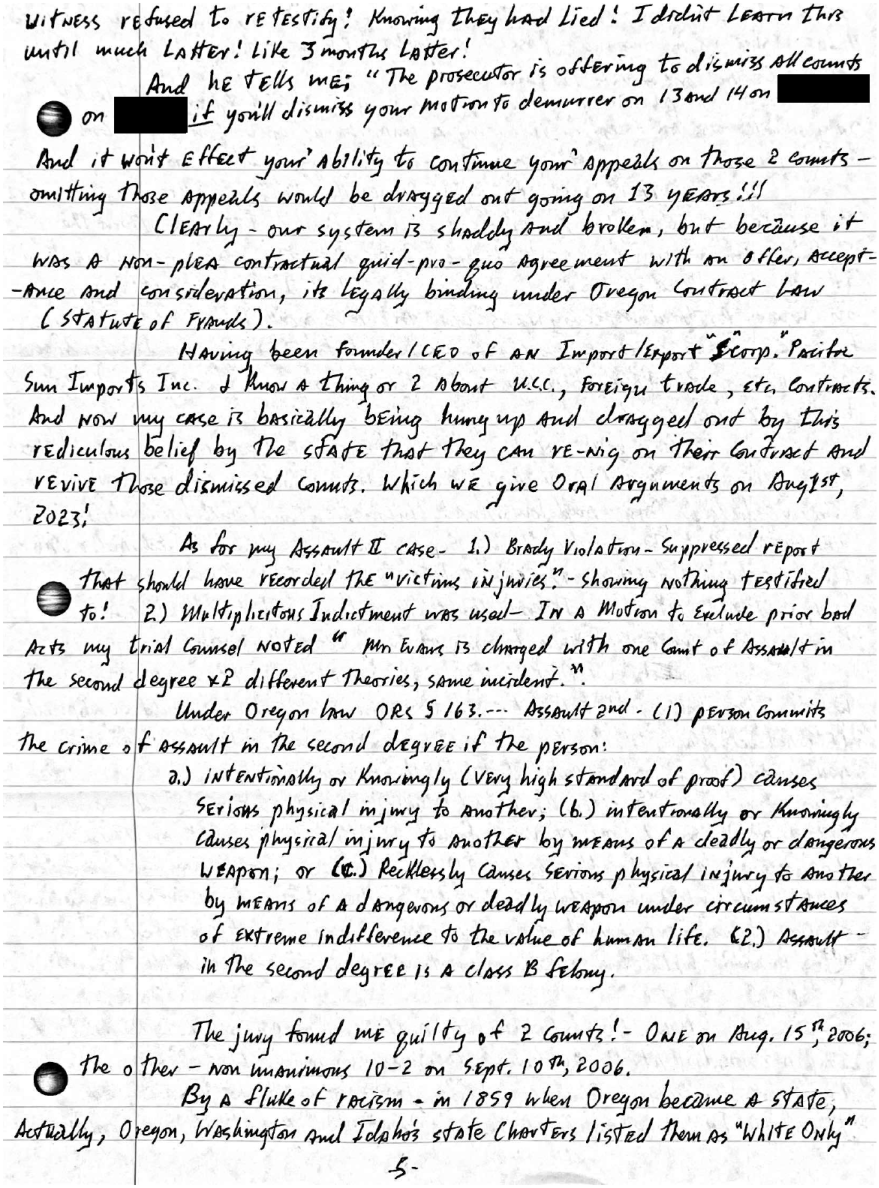 WitNess refused to retestify! Knowing they had Lied! I didn't Learn this
until much Latter! Like 3 months Latter!
And he tells me; "The prosecutor is offering to dismiss All counts
on if you'll dismiss your Motion to demurrer on 13 and 14 on
And it won't Effect your' Ability to continue your' Appeals on those 2 counts –
omitting those Appeals would be dragged out going on 13 years!!!
Clearly – our system is shaddy and broken, but because it
was a non-plea contractual quid-pro-quo Agreement with an offer, Accept-
-ance and consideration, its legally binding under Oregon Contract Law
(Statute of Frauds).
Having been founder/CEO of AN Import/Export "S"Corp." Pacific
Sun Imports Inc. I know a thing or 2 About U.C.C., Foreign trade, etc. Contracts.
And now my case is basically being hung up and dragged out by this
rediculous belief by the state that they can re-nig on their Contract and
revive those dismissed Counts. Which we give Oral Arguments on Aug 1st,
2023!
As for my Assault II case- 1.) Brady Violation – Suppressed report
that should have recorded the "victims injuries." – showing nothing testified
to! 2.) Multiplicitous Indictment was used – In a Motion to Exclude prior bad
Acts my trial Counsel noted " Mr. Evans is charged with one Count of Assault in
the second degree x2 different theories, same incident.".
Under Oregon law ORS § 163.--- Assault 2nd. (1) person Commits
the crime of assault in the second degree if the person:
a.) intentionally or Knowingly (very high standard of proof) causes
serious physical injury to Another; (b.) intentionally or Knowingly
causes physical injury to Another by means of a deadly or dangerous
weapon; or (c.) Recklessly causes serious physical injury to Another
by means of a dangerous or deadly weapon under circumstances
of extreme indifference to the value of human life. (2.) Assault –
in the second degree is a class B felony.
The jury found me guilty of 2 Counts! – One on Aug. 15th, 2006;
the other – non unanimous 10-2 on Sept. 10th, 2006.
By a fluke of racism – in 1859 when Oregon became a state,
Actually, Oregon, Washington and Idaho's state Charters listed them as "White Only"
-5-